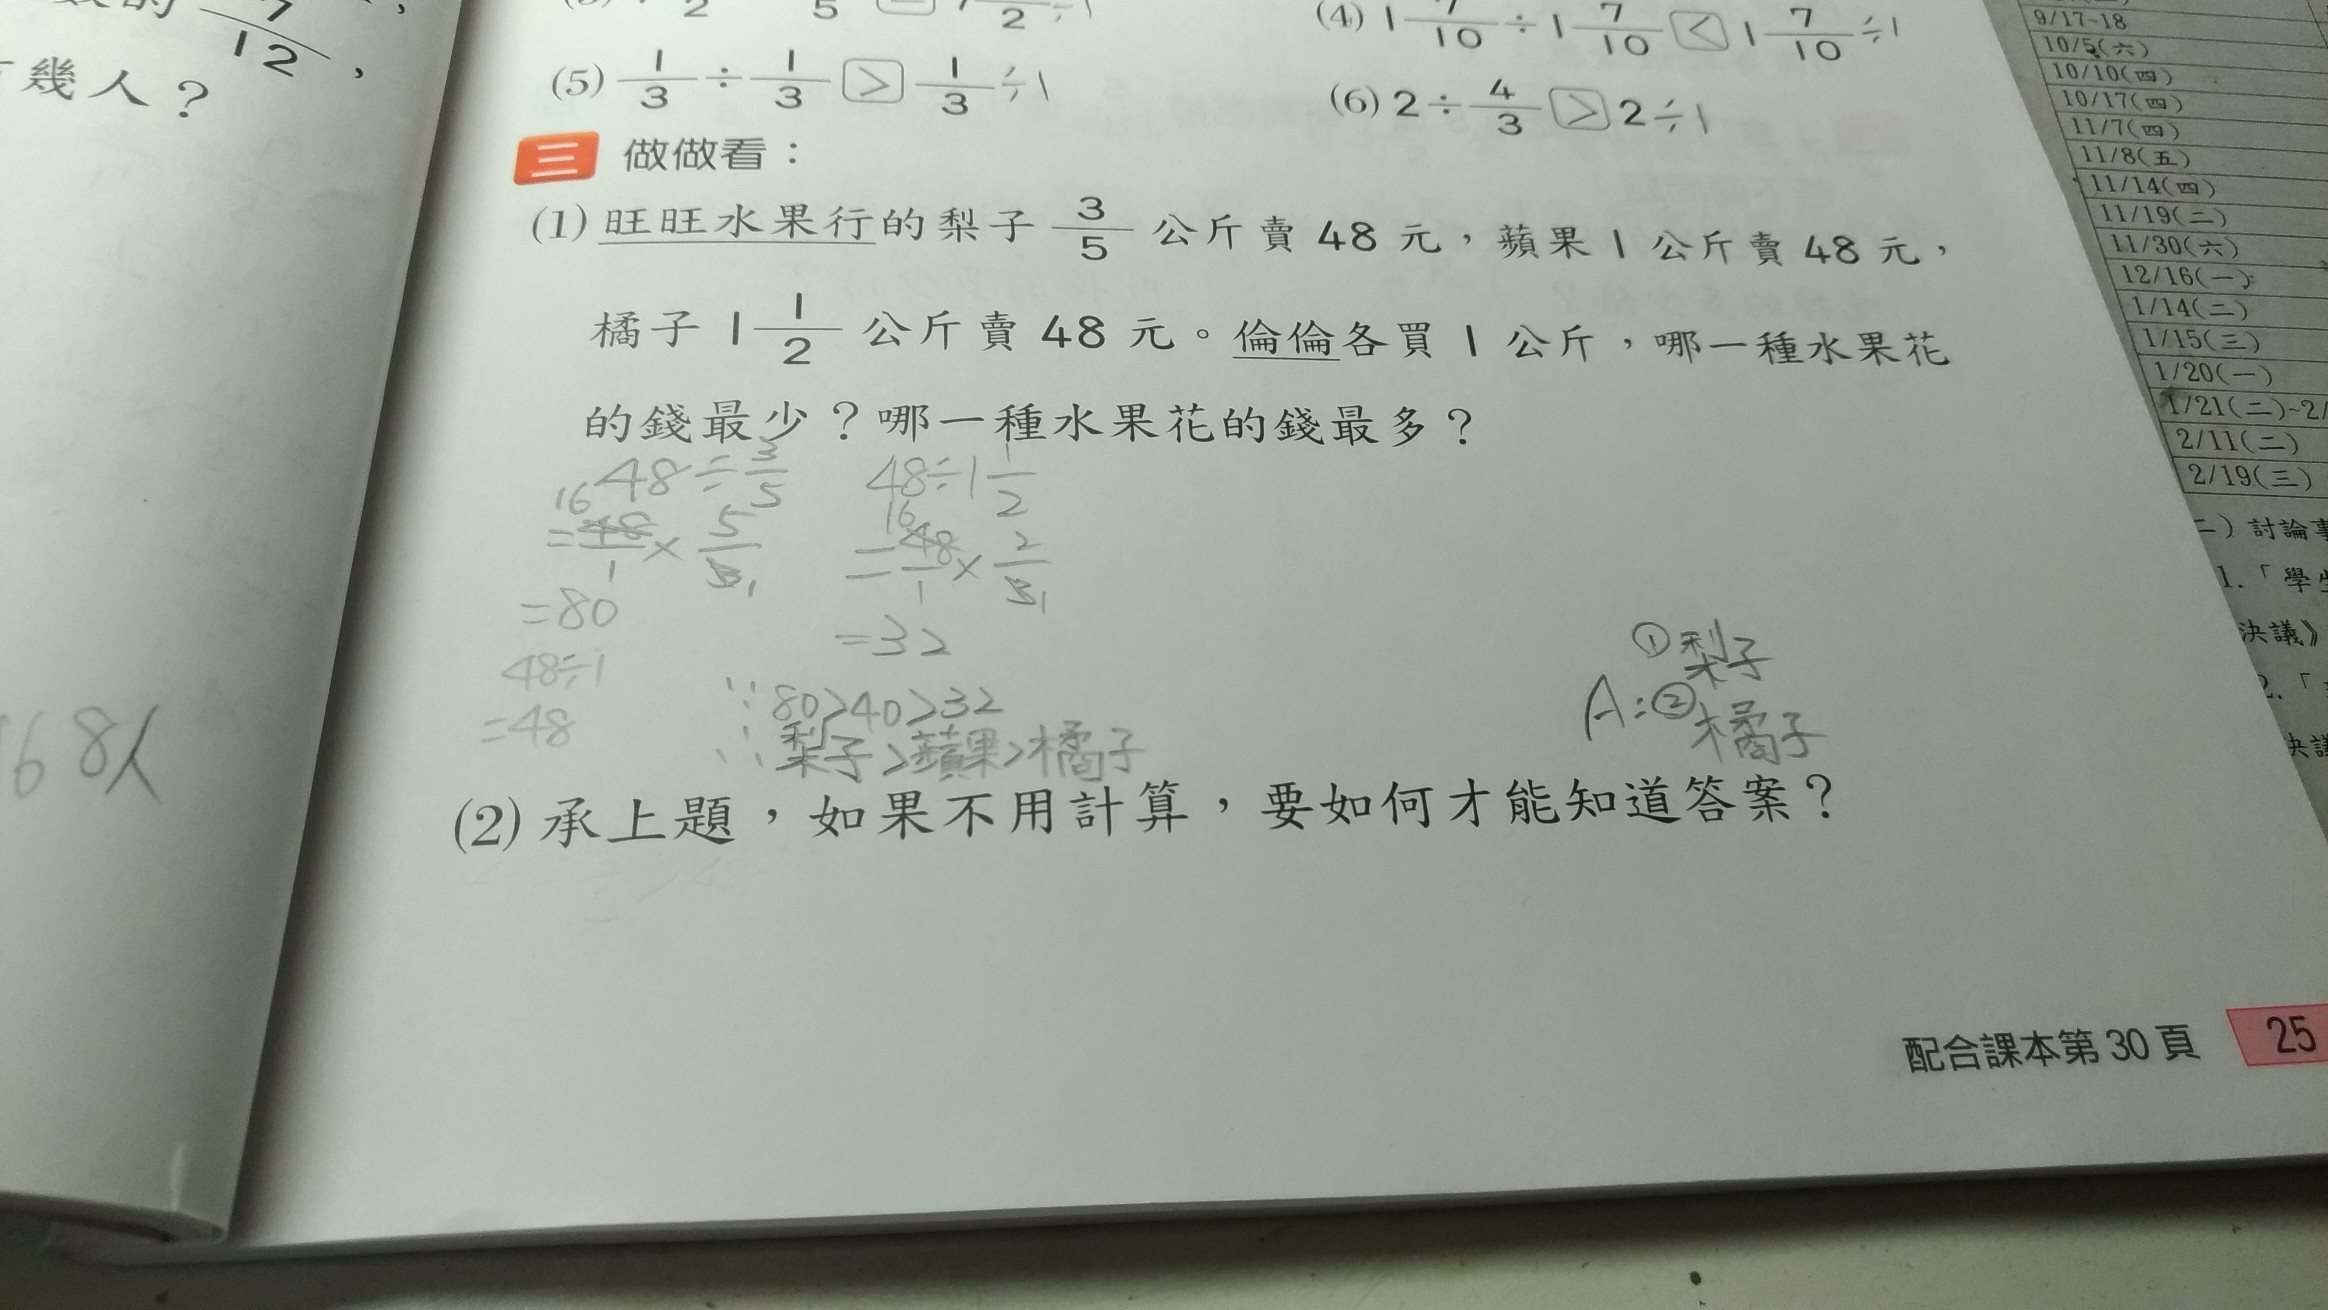 7/12，
幾人？
168人
(4) 1 7/10 ÷ 1 7/10 < 1 7/10 ÷1
(5) 1/3 ÷ 1/3 > 1/3 ÷1
(6) 2 ÷ 4/3 > 2 ÷1
三 做做看：
(1) 旺旺水果行的梨子 3/5 公斤賣 48 元，蘋果 1 公斤賣 48 元，
橘子 1 1/2 公斤賣 48 元。倫倫各買 1 公斤，哪一種水果花
的錢最少？哪一種水果花的錢最多？
48÷3/5
=48/1×5/3
16
1
=80
48÷1
=48
48÷1 1/2
=48/1×2/3
16
1
=32
∵80>40>32
∴梨子>蘋果>橘子
A:①梨子
②橘子
(2) 承上題，如果不用計算，要如何才能知道答案？
配合課本第 30 頁 25
9/17-18
10/5(六)
10/10(四)
10/17(四)
11/7(四)
11/8(五)
11/14(四)
11/19(二)
11/30(六)
12/16(一)
1/14(二)
1/15(三)
1/20(一)
1/21(二)~2/
2/11(二)
2/19(三)
二）討論事
1.「學生
決議》
2.「